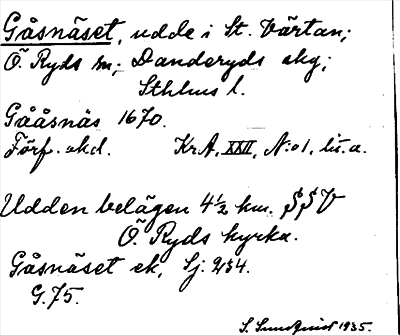 Gåsnäset, udde i St. Värtan;
Ö. Ryds sn; Danderyds skg;
Sthlms l.
Gååsnäs 1670.
Förf. okd. Kr.A. XXII, N:o 1, lit. a.
Udden belägen 4 1/2 km. SSV
Ö. Ryds kyrka.
Gåsnäset ek, Sj. 234.
G. 75.
S. Sundquist 1935.